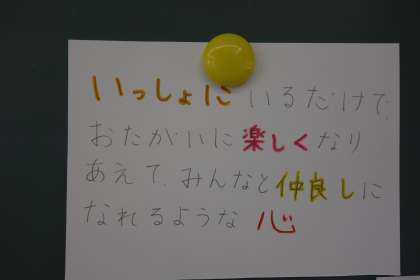 いっしょにいるだけで、
おたがいに楽しくなり
あえて、みんなと仲良しに
なれるような心